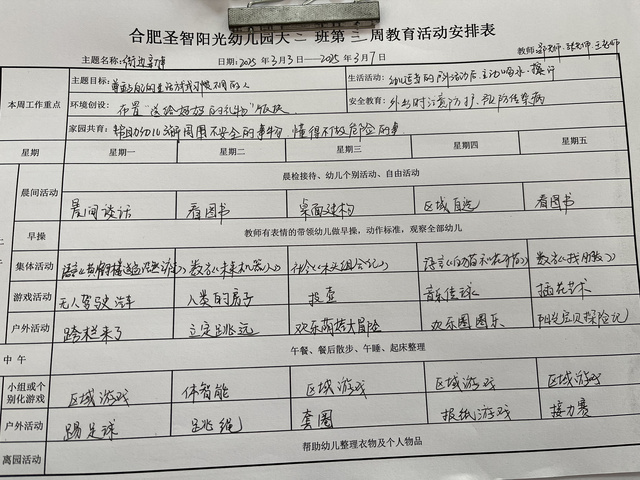 合肥圣智阳光幼儿园大二班第三周教育活动安排表
主题名称: 日期:2025年3月3日——2025年3月7日 教师:
本周工作重点
主题目标: 的人
生活活动: 主动喝水、
环境创设: 布置"送给妈妈的礼物"板块
安全教育: 外出时注意防护、预防传染病
家园共育: 帮助幼儿了解周围不安全的事物,懂得不做危险的事
星期 星期一 星期二 星期三 星期四 星期五
晨间活动 晨检接待、幼儿个别活动、自由活动
晨间谈话 看图书 桌面建构 区域自选 看图书
早操 教师有表情的带领幼儿做早操,动作标准,观察全部幼儿
集体活动 语言《黄鹤楼送孟浩然》 数学《未来机器人》 社会《 组合记》 数学《找 》
游戏活动 无人驾驶汽车 人类的房子 投壶 音乐传球 插花艺术
户外活动 跨栏来了 立定跳远 欢乐荫塔大冒险 欢乐圈圈乐 阳光宝贝探险记
中午 午餐、餐后散步、午睡、起床整理
小组或个别化游戏 区域游戏 体智能 区域游戏 区域游戏 区域游戏
户外活动 踢足球 跳绳 套圈 报纸游戏 接力赛
离园活动 帮助幼儿整理衣物及个人物品